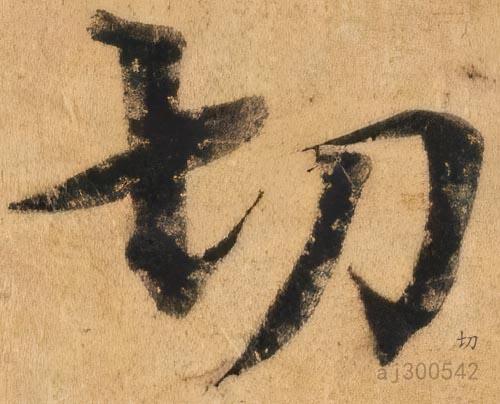 切
切
aj300542